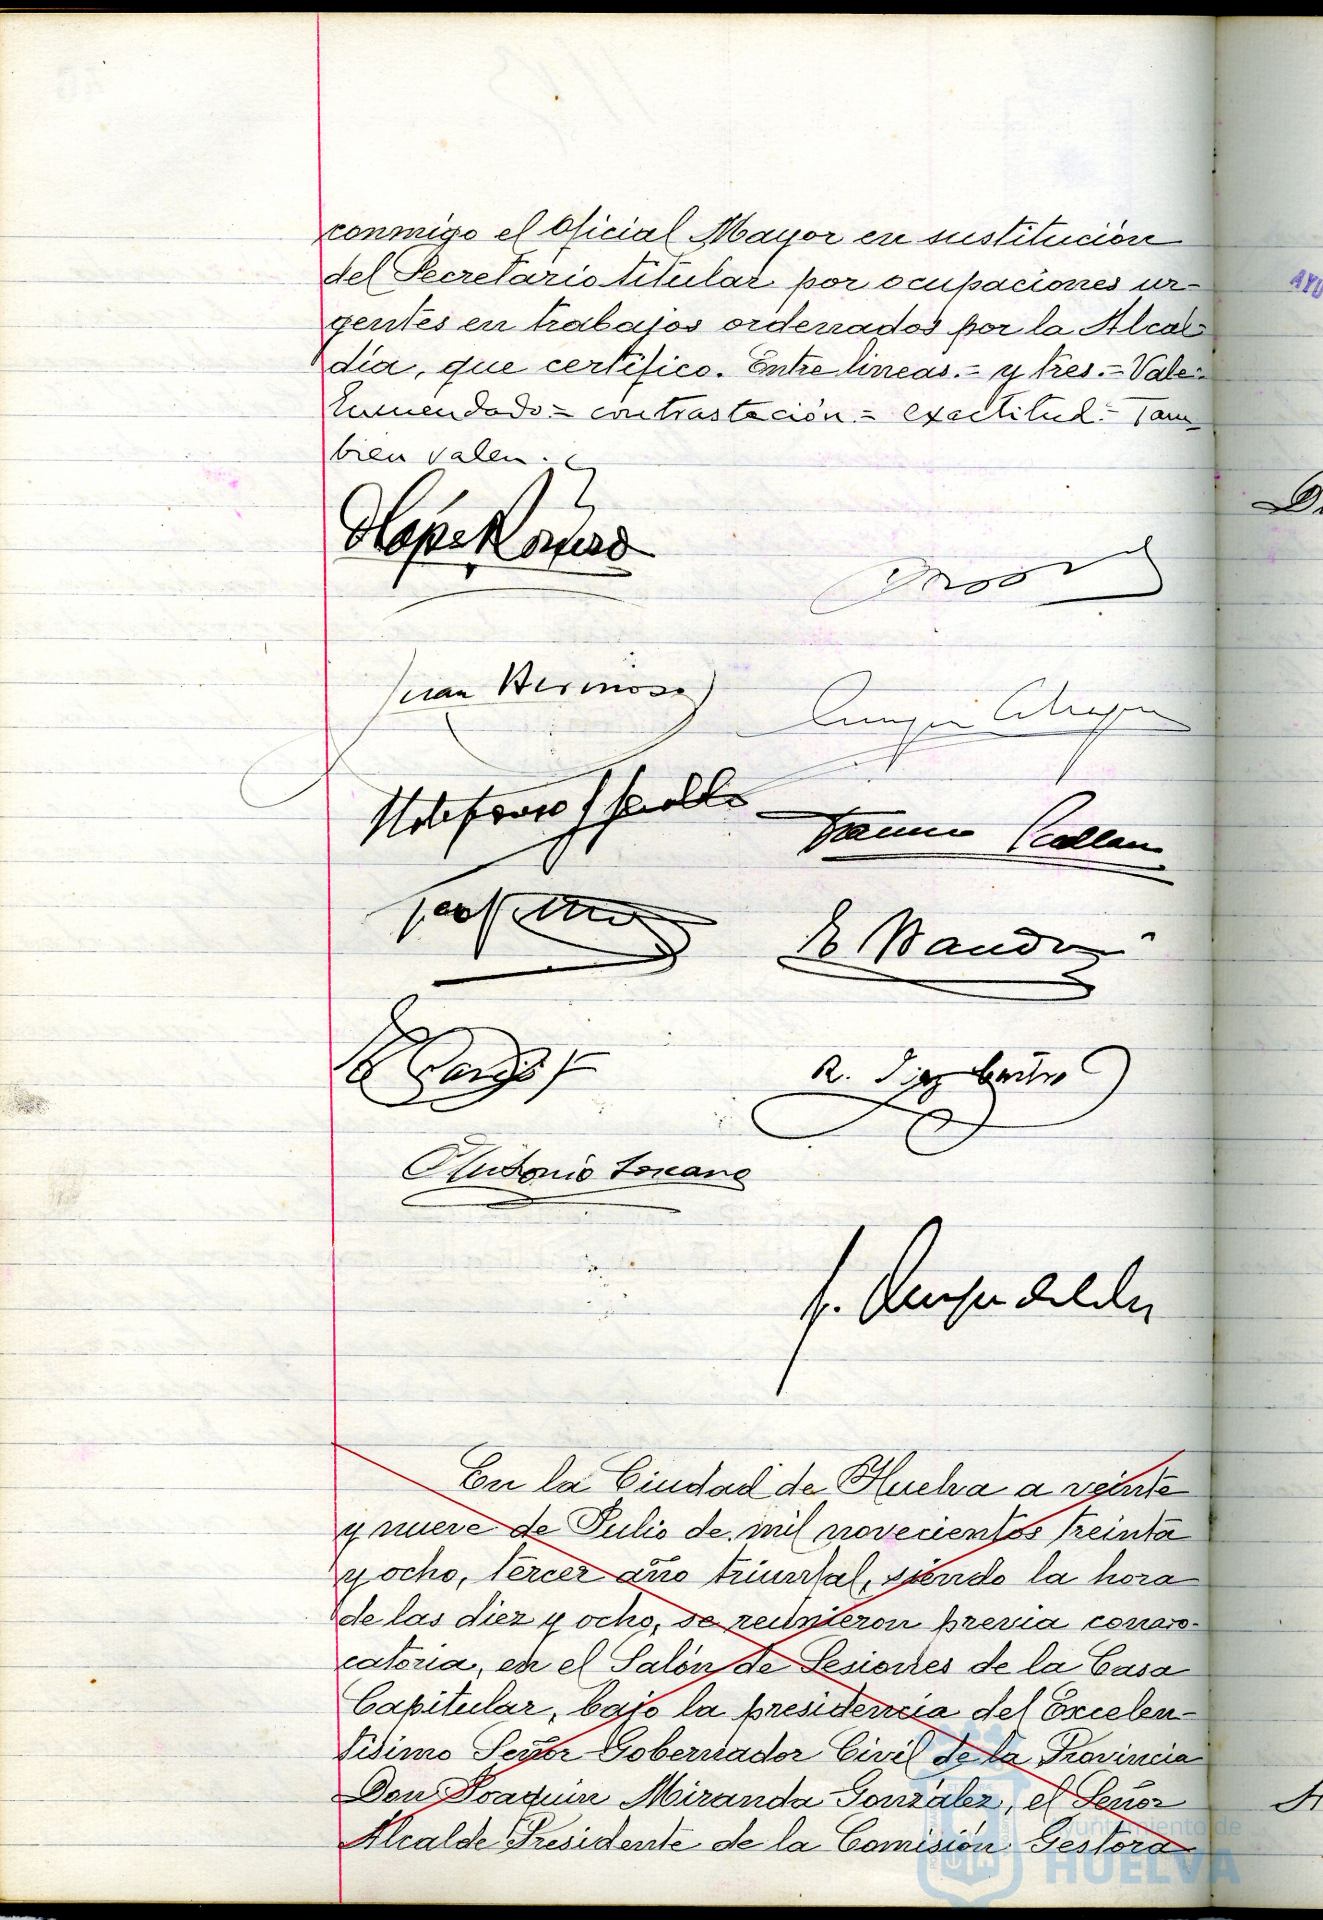 conmigo el Oficial Mayor en sustitución
del Secretario titular por ocupaciones ur-
gentes en trabajos ordenados por la Alcal-
día, que certifico. Entre lineas.= y tres.= Vale:
Enmendado= contrastación.= exactitud= Tam-
bien valen.
Juan Hermoso
R. Diaz Castro
Antonio Lozano
En la Ciudad de Huelva a veinte
y nueve de Julio de mil novecientos treinta
y ocho, tercer año triunfal, siendo la hora
de las diez y ocho, se reunieron previa convo-
catoria, en el Salón de Sesiones de la Casa
Capitular, bajo la presidencia del Excelen-
tisimo Señor Gobernador Civil de la Provincia
Don Joaquin Miranda González, el Señor
Alcalde Presidente de la Comisión Gestora
Ayuntamiento de
HUELVA